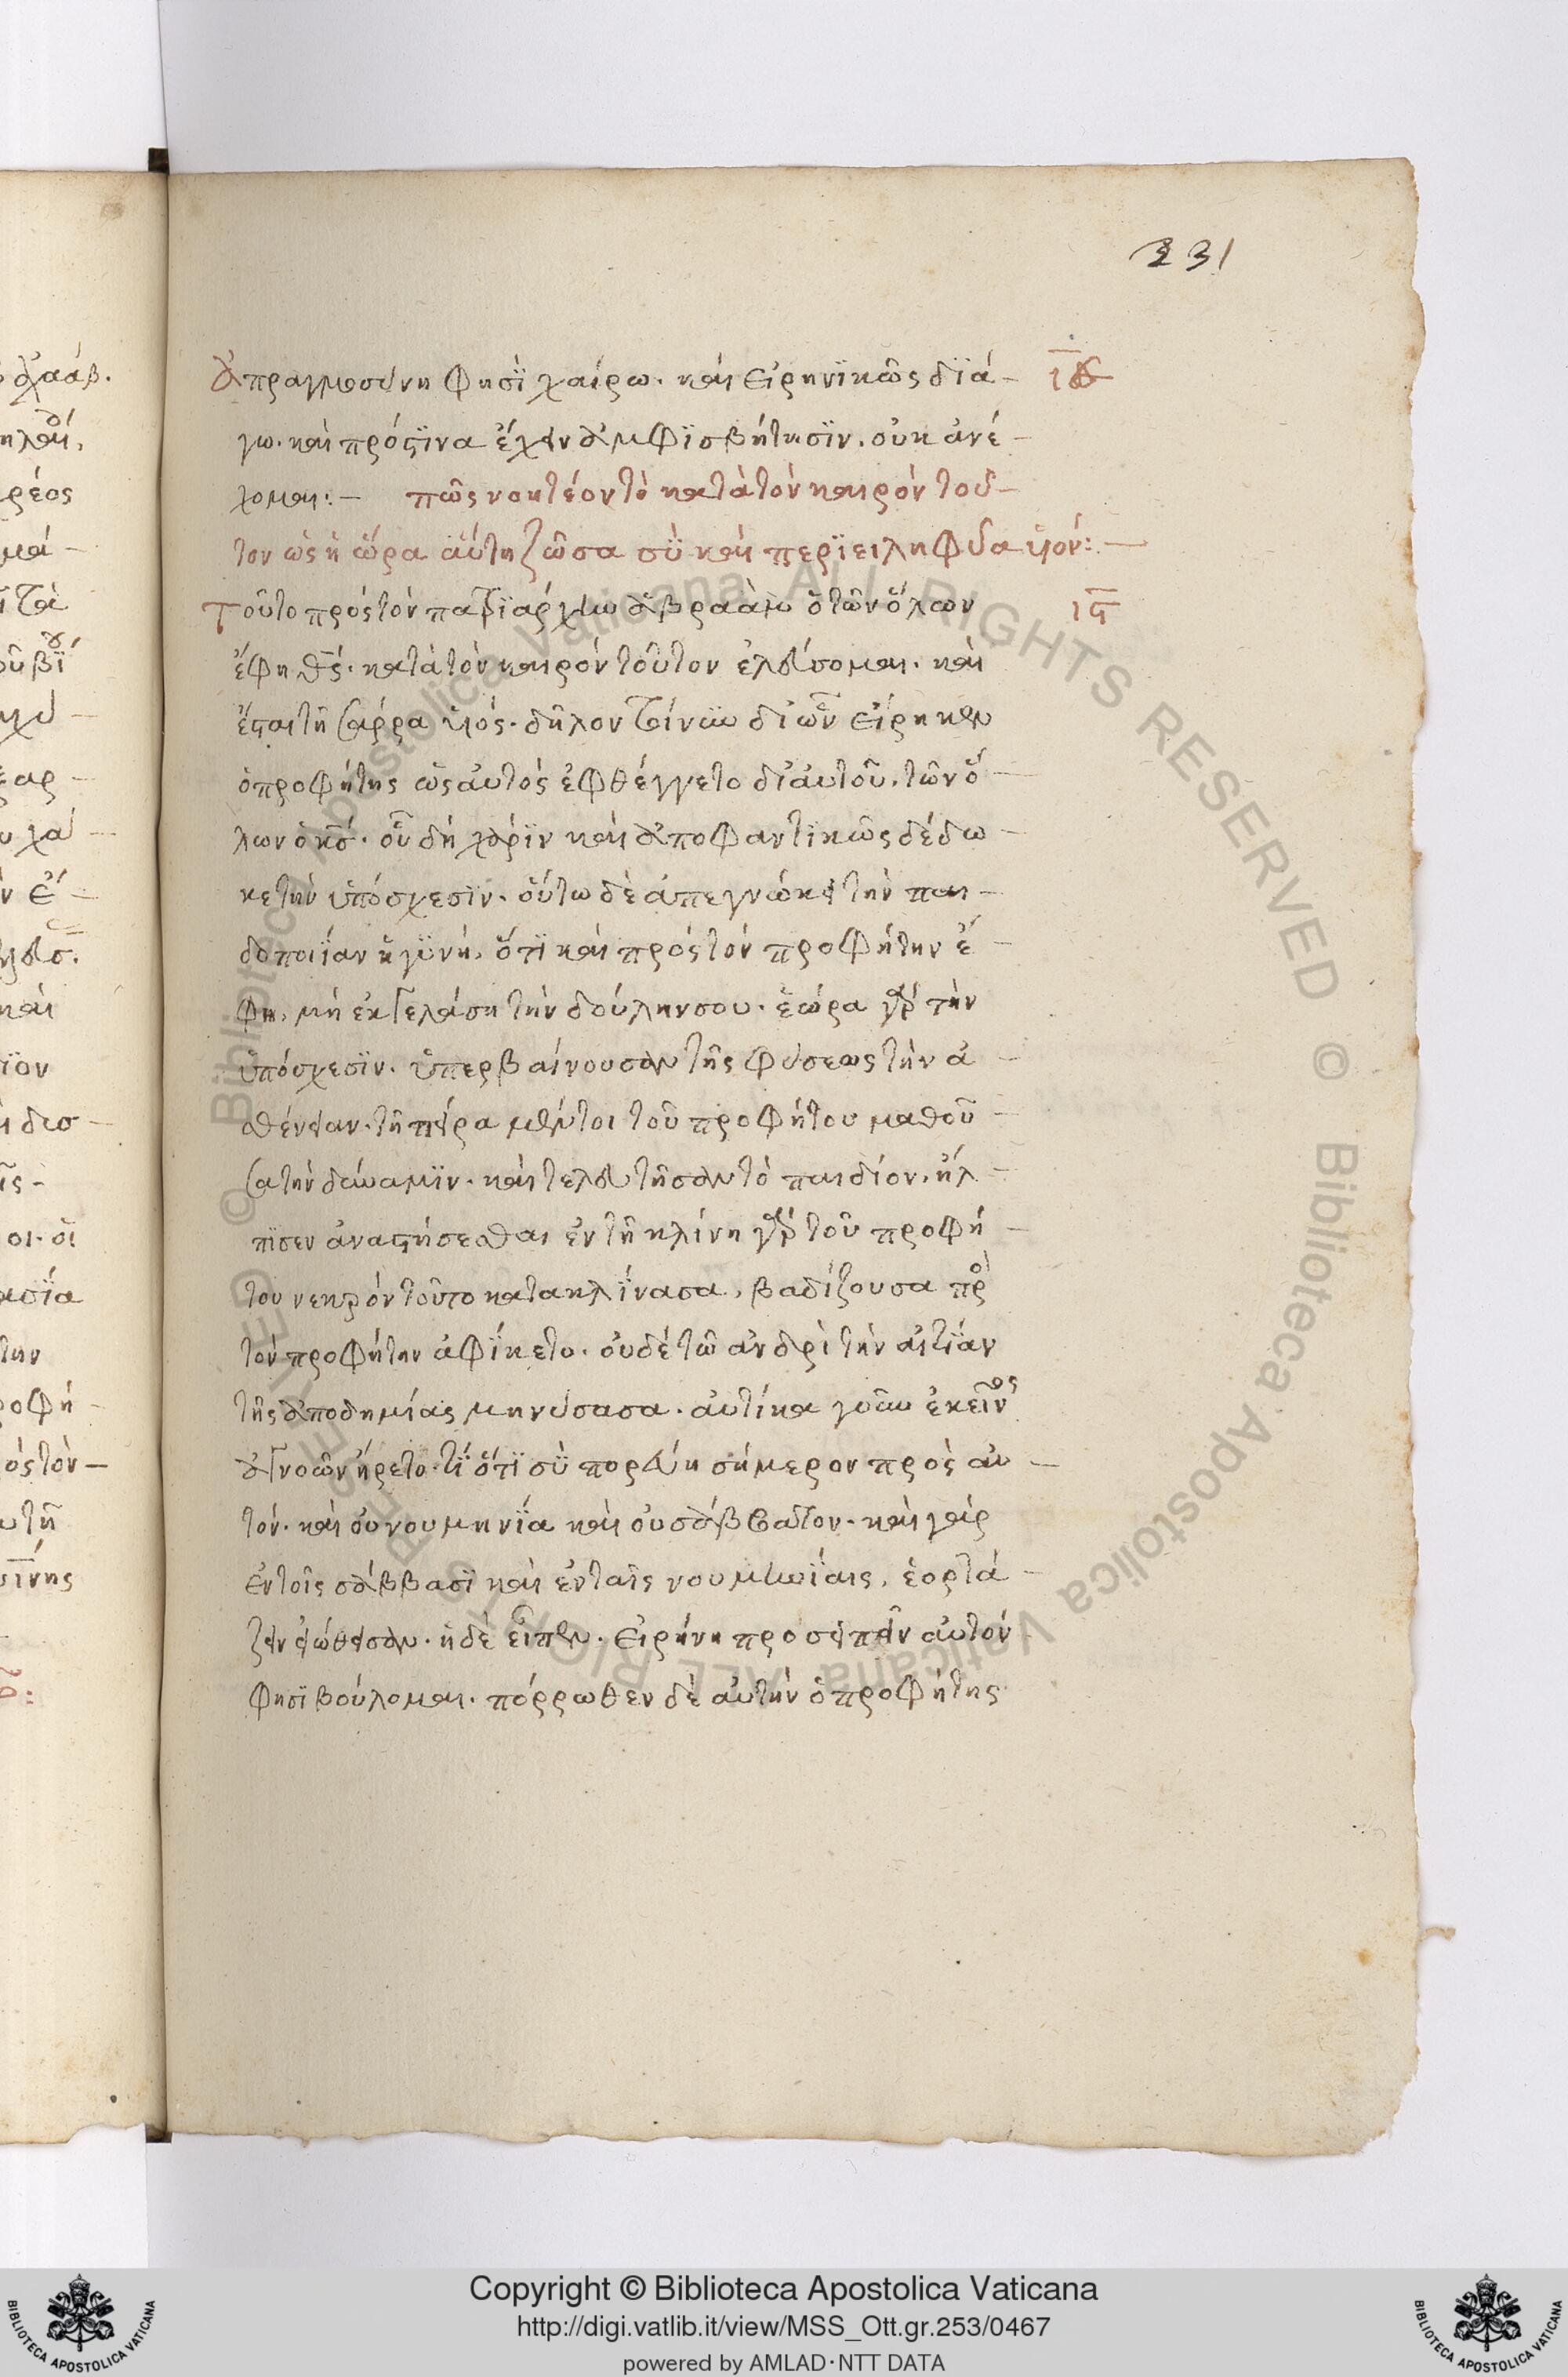 231
ἀπραγμοσύνη φησϊ χαίρω. καὶ εἰρηνϊκῶς δϊά-
ιε
γω. καὶ πρός τϊνα ἔχειν ἀμφϊσβήτησϊν. οὐκ ἀνέ-
χομαι:- πῶς νοητέον τὸ κατὰ τὸν καιρὸν τοῦ-
τον ὡς ἡ ὥρα αὕτη ζῶσα σὺ καὶ περϊειληφυῖα υἱόν:-
Τοῦτο πρὸς τὸν πατρϊάρχην ἀβραὰμ ὁ τῶν ὅλων
ιϛ
ἔφη θς. κατὰ τὸν καιρὸν τοῦτον ἐλεύσομαι. καὶ
ἔσται τῆ σάρρα υἱός. δῆλον τοίνυν δι ὧν εἴρηκεν
ὁ προφήτης ὡς αὐτὸς ἐφθέγγετο δι αὐτοῦ. τῶν ὅ-
λων ὁ κς. οὗ δὴ χάρϊν καὶ ἀποφαντϊκῶς δέδω-
κε τὴν ὑπόσχεσϊν. οὕτω δὲ ἀπεγνώκει τὴν παι-
δοποιΐαν ἡ γϋνή, ὅτϊ καὶ πρὸς τὸν προφήτην ἔ-
φη, μὴ ἐκγελάση τὴν δούλην σου. ἑώρα γὰρ τὴν
ὑπόσχεσϊν. ὑπερβαίνουσαν τῆς φύσεως τὴν ἀ-
σθένειαν. τῆ πείρα μέντοι τοῦ προφήτου μαθοῦ-
σα τὴν δύναμϊν. καὶ τελευτῆσαν τὸ παιδίον, ἤλ-
πϊσεν ἀναστήσεσθαι ἐν τῆ κλίνη γὰρ τοῦ προφή-
του νεκρὸν τοῦτο κατακλΐνασα, βαδίζουσα πρὸ
τὸν προφήτην ἀφΐκετο. οὐδὲ τῶ ἀνδρὶ τὴν αἰτΐαν
τῆς ἀποδημίας μηνύσασα. αὐτίκα γοῦν ἐκεῖνος
ἀγνοῶν ἤρετο. τΐ ὅτϊ σὺ πορεύη σήμερον πρὸς αὐ-
τόν. καὶ οὐ νουμηνΐα καὶ οὐ σάββατον. καὶ γὰρ
ἐν τοῖς σάββασϊ καὶ ἐν ταῖς νουμηνΐαις, ἑορτά-
ζειν εἰώθεισαν. ἡ δὲ εἶπεν. εἰρήνη προσειπεῖν αὐτὸν
φησϊ βούλομαι. πόρρωθεν δὲ αὐτὴν ὁ προφήτης
Copyright © Biblioteca Apostolica Vaticana
http://digi.vatlib.it/view/MSS_Ott.gr.253/0467
powered by AMLAD·NTT DATA